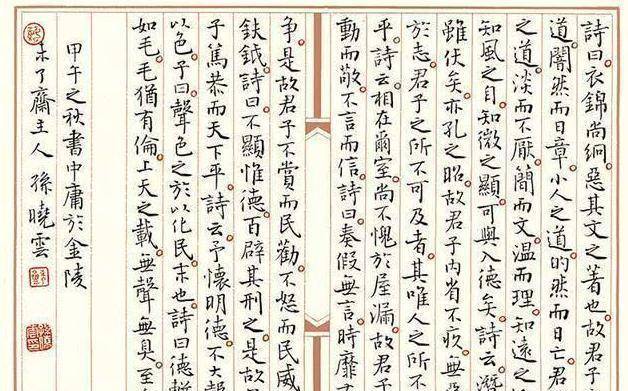 詩曰衣錦尚絅惡其文之著也故君子
道闇然而日章小人之道的然而日亡君
之道淡而不厭簡而文溫而理知遠之
知風之自知微之顯可與入德矣詩云潛
雖伏矣亦孔之昭故君子內省不疚無惡
於志君子之所不可及者其唯人之所不
乎詩云相在爾室尚不愧於屋漏故君
動而敬不言而信詩曰奏假無言時靡
爭是故君子不賞而民勸不怒而民威
鈇鉞詩曰不顯惟德百辟其刑之是故
子篤恭而天下平詩云予懷明德不大聲
以色子曰聲色之於以化民末也詩曰德輶
如毛毛猶有倫上天之載無聲無臭至
甲午之秋書中庸於金陵
未了齋主人孫曉雲